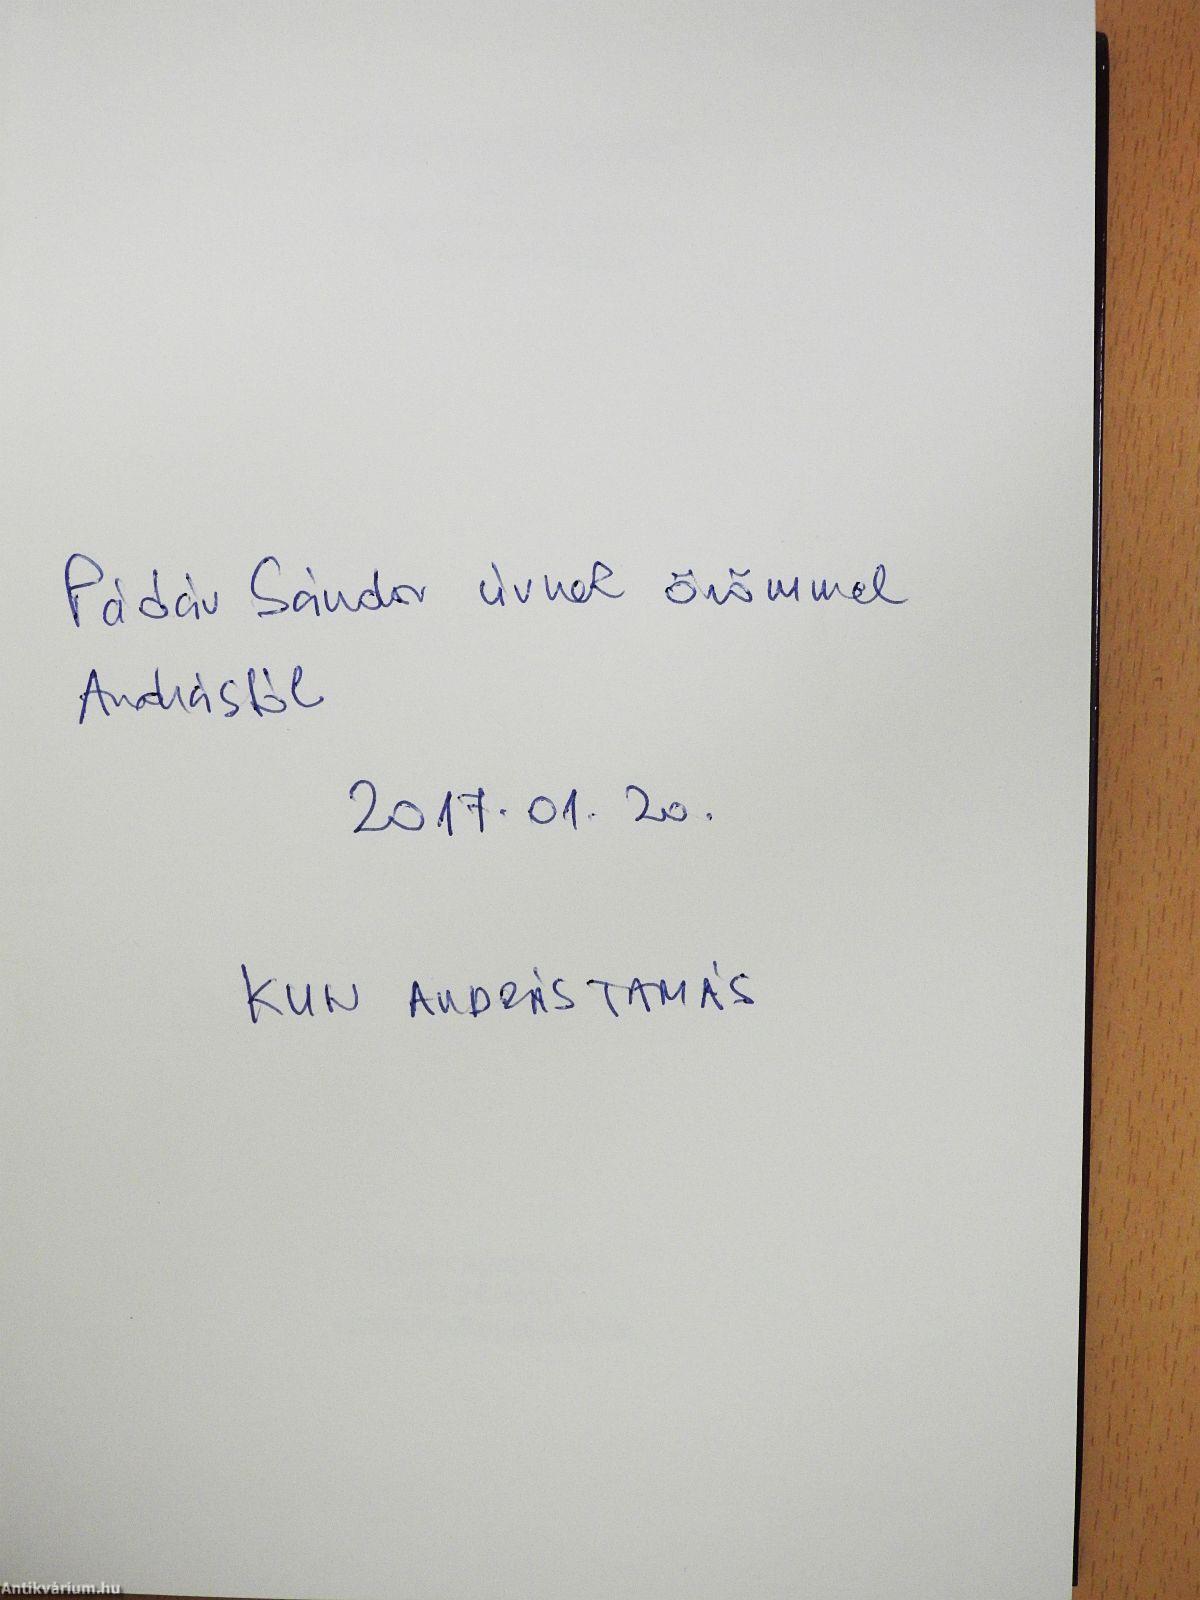 Pádár Sándor úrnak örömmel
Andrástól
2017. 01. 20.
KUN ANDRÁS TAMÁS
Antikvárium.hu